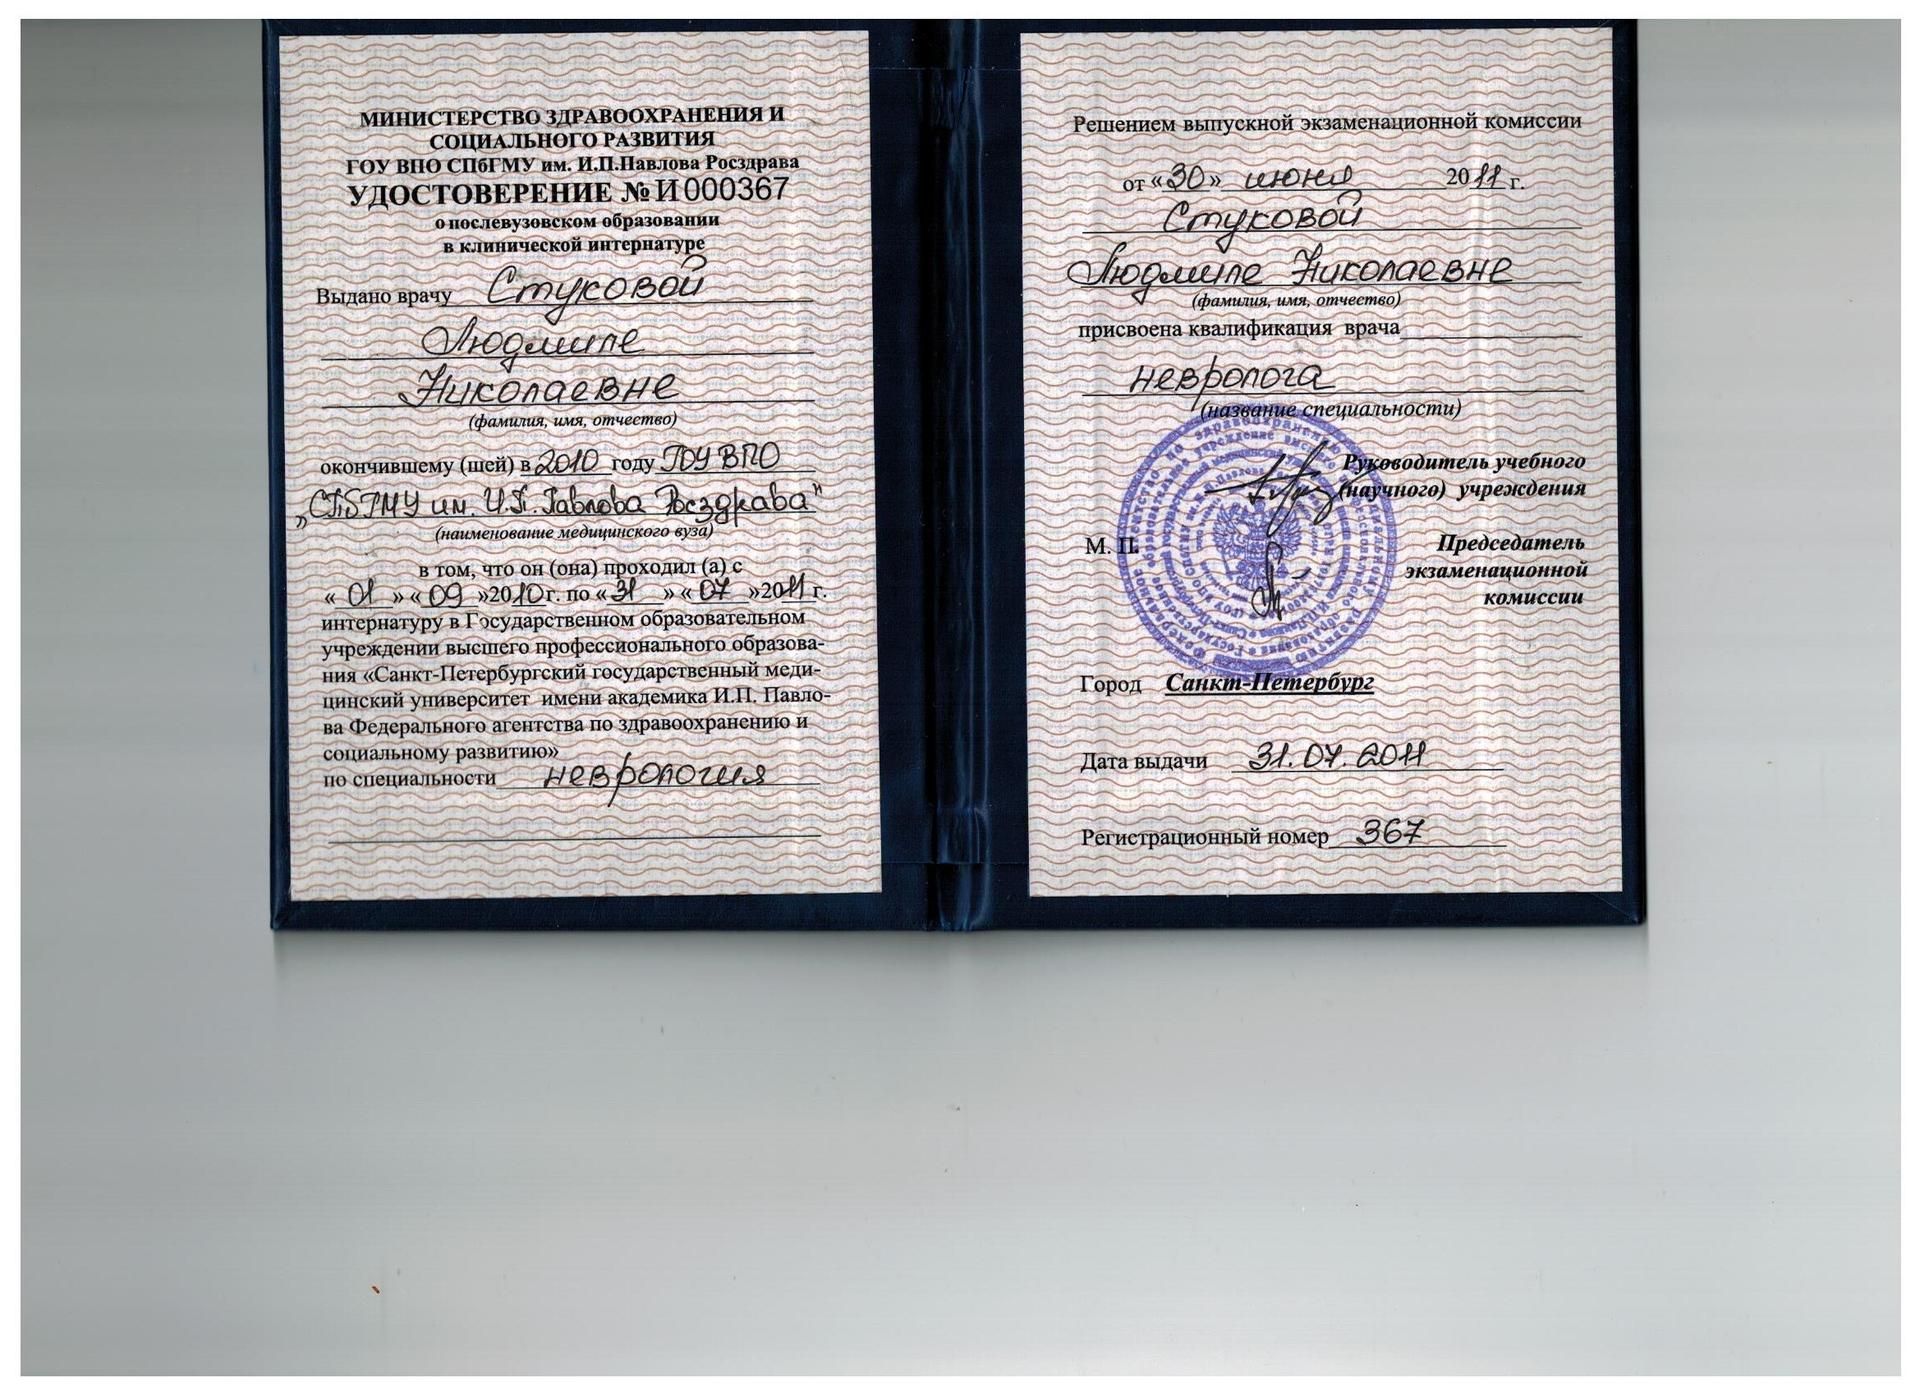 МИНИСТЕРСТВО ЗДРАВООХРАНЕНИЯ И
СОЦИАЛЬНОГО РАЗВИТИЯ
ГОУ ВПО СПбГМУ им. И.П.Павлова Росздрава
УДОСТОВЕРЕНИЕ № И 000367
о послевузовском образовании
в клинической интернатуре
Выдано врачу Стуковой
Людмиле
Николаевне
(фамилия, имя, отчество)
окончившему (шей) в 2010 году ГОУ ВПО
„СПбГМУ им. И.П. Павлова Росздрава"
(наименование медицинского вуза)
в том, что он (она) проходил (а) с
« 01 » « 09 »2010г. по « 31 » « 07 »2011 г.
интернатуру в Государственном образовательном
учреждении высшего профессионального образова-
ния «Санкт-Петербургский государственный меди-
цинский университет имени академика И.П. Павло-
ва Федерального агентства по здравоохранению и
социальному развитию»
по специальности неврология
Решением выпускной экзаменационной комиссии
от «30» июня 2011 г.
Стуковой
Людмиле Николаевне
(фамилия, имя, отчество)
присвоена квалификация врача
невролога
(название специальности)
Руководитель учебного
(научного) учреждения
М. П.
Председатель
экзаменационной
комиссии
Город Санкт-Петербург
Дата выдачи 31.07.2011
Регистрационный номер 367